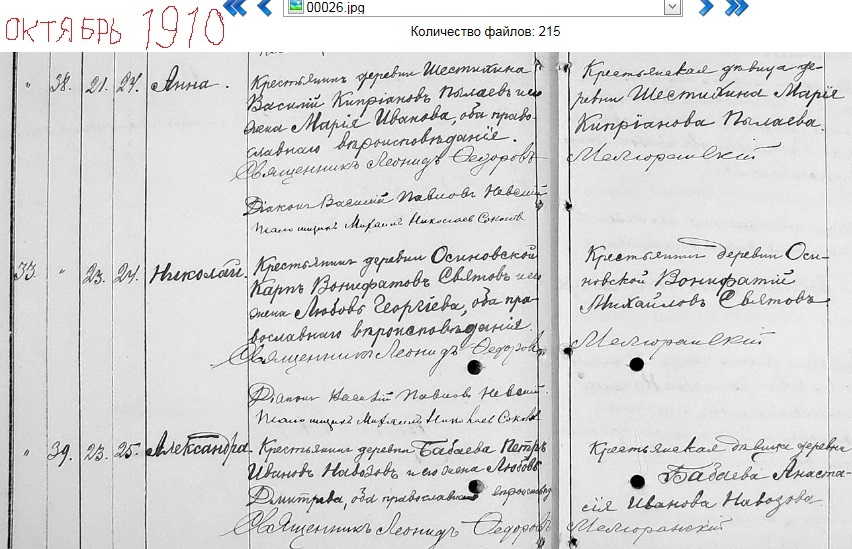 ОКТЯБРЬ 1910
00026.jpg
Количество файлов: 215
" 38. 21. 24. Анна.
Крестьянинъ деревни Шестихина
Василій Кипріановъ Пылаевъ и его
жена Марія Иванова, оба право-
славнаго вѣроисповѣданія.
Священникъ Леонидъ Ѳедоровъ
Діаконъ Василій Павловъ Невскій
Псаломщикъ Михаилъ Николаевъ Соколовъ
Крестьянская дѣвица де-
ревни Шестихина Марія
Кипріанова Пылаева.
33. " 23. 24. Николай.
Крестьянинъ деревни Осиновской
Карпъ Вонифатовъ Святовъ и его
жена Любовь Георгіева, оба пра-
вославнаго вѣроисповѣданія.
Священникъ Леонидъ Ѳедоровъ
Діаконъ Василій Павловъ Невскій.
Псаломщикъ Михаилъ Николаевъ Соколовъ
Крестьянинъ деревни Оси-
новской Вонифатій
Михайловъ Святовъ.
" 39. 23. 25. Александра.
Крестьянинъ деревни Бабаева Петръ
Ивановъ Навозовъ и его жена Любовь
Димитріева, оба православнаго вѣроисповѣд
Священникъ Леонидъ Ѳедоровъ
Крестьянская дѣвица деревни
Бабаева Анаста-
сія Иванова Навозова